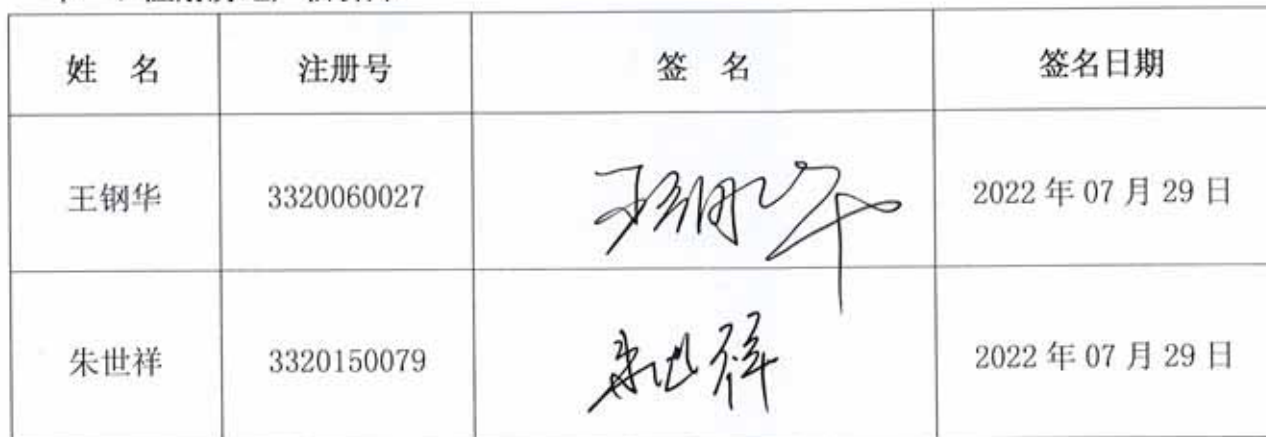 姓 名 注册号 签 名 签名日期
王钢华 3320060027 王钢华 2022 年 07 月 29 日
朱世祥 3320150079 朱世祥 2022 年 07 月 29 日